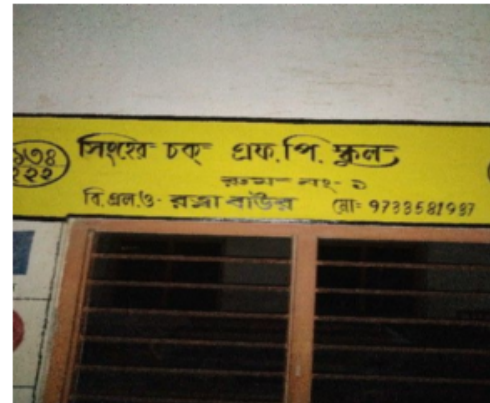 ২২২
সিংহের চক্ এফ.পি. স্কুল
রুম নং- ১
বি.এল.ও- রত্না বাউর মো= 9733581937